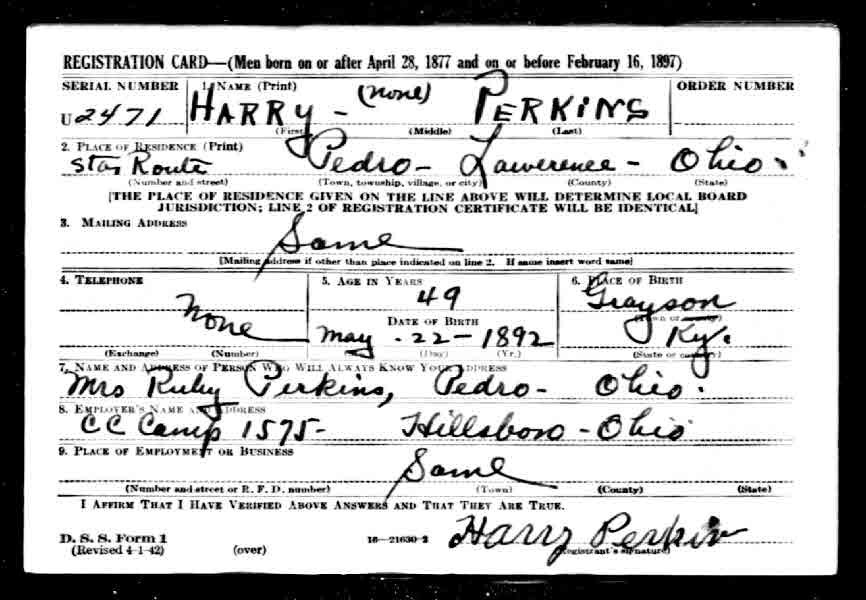 REGISTRATION CARD—(Men born on or after April 28, 1877 and on or before February 16, 1897)
SERIAL NUMBER 1. NAME (Print) ORDER NUMBER
U 2471 HARRY - (none) PERKINS
(First) (Middle) (Last)
2. PLACE OF RESIDENCE (Print)
Star Route Pedro - Lawerence - Ohio
(Number and street) (Town, township, village, or city) (County) (State)
[THE PLACE OF RESIDENCE GIVEN ON THE LINE ABOVE WILL DETERMINE LOCAL BOARD
JURISDICTION; LINE 2 OF REGISTRATION CERTIFICATE WILL BE IDENTICAL]
3. MAILING ADDRESS
Same
[Mailing address if other than place indicated on line 2. If same insert word same]
4. TELEPHONE 5. AGE IN YEARS 6. PLACE OF BIRTH
49 Grayson
None DATE OF BIRTH (Town or county)
May - 22 - 1892 Ky.
(Exchange) (Number) (Day) (Yr.) (State or country)
7. NAME AND ADDRESS OF PERSON WHO WILL ALWAYS KNOW YOUR ADDRESS
Mrs Ruby Perkins, Pedro - Ohio.
8. EMPLOYER'S NAME AND ADDRESS
CC Camp 1575 - Hillsboro - Ohio
9. PLACE OF EMPLOYMENT OR BUSINESS
Same
(Number and street or R. F. D. number) (Town) (County) (State)
I AFFIRM THAT I HAVE VERIFIED ABOVE ANSWERS AND THAT THEY ARE TRUE.
D. S. S. Form 1
(Revised 4-1-42) (over) 16—21630-2 Harry Perkins
(Registrant's signature)